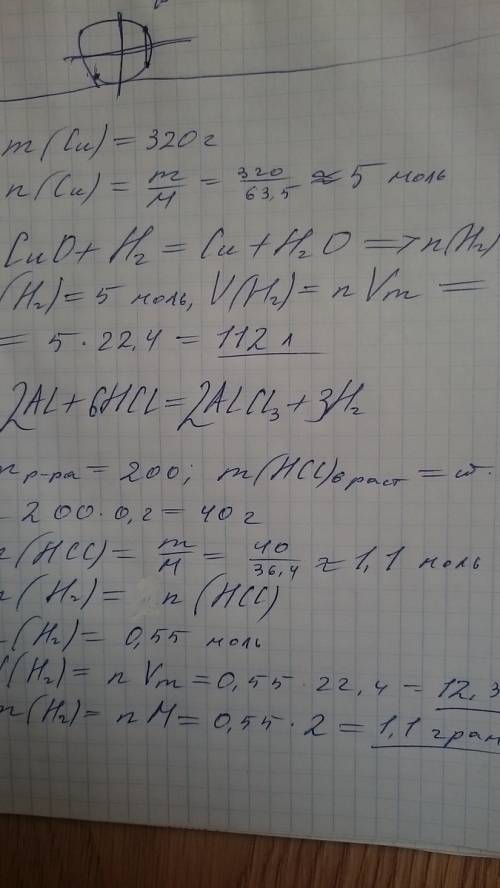 m(Cu) = 320 г
n(Cu) = m/M = 320/63,5 ≈ 5 моль
CuO + H₂ = Cu + H₂O => n(H₂)
(H₂) = 5 моль, V(H₂) = n Vm =
= 5 · 22,4 = 112 л
2Al + 6HCl = 2AlCl₃ + 3H₂
р-ра = 200; m(HCl) в раст = w ·
200 · 0,2 = 40 г
(HCl) = m/M = 40/36,4 ≈ 1,1 моль
(H₂) = n(HCl)
(H₂) = 0,55 моль
(H₂) = n Vm = 0,55 · 22,4 = 12,3
m(H₂) = n M = 0,55 · 2 = 1,1 грам